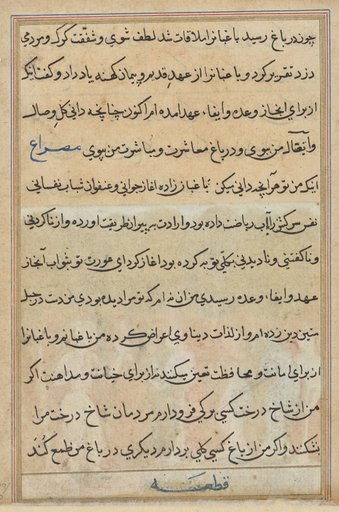 چون در باغ رسید باغبانرا ملاقات شد لطف شوی و شفقت کرک و مردمی
دزد تقریر کرد و باغبانرا از عهد قدیم و پیمان کهنه یاد داد و گفت اینک
از برای انجاز وعده و ایفاء عهد آمده ام اکنون چنانچه دانی کل وصال
من بوی و در باغ معاشرت و مباشرت من پوی مصراع
اینک من تو هر آنچه دانی میکن باغبان زاده اغاز جوانی و عنفوان شباب نفسانی
نفس سرکش را بآب ریاضت داده بود و ارادت بر پیر از طریقت اورده و از ناکردنی
و ناکفتنی و نادیدنی بکلی توبه کرده بود اغاز کرد ای عورت تو بثواب انجاز
عهد و ایفاء وعده رسیدی من ان نه ام که تو مرا دیده بودی من دست در حبل
متین دین زده ام و از لذات دنیاوی اعراض کرده من باغبانم و باغبانرا
از برای امانت و محافظت تعین میکنند نه از برای خیانت و مداهنت اکر
من از شاخ درخت کسی برکی فرود ارم مردمان شاخ درخت مرا
بشکنند و اکر من از باغ کسی کلی بردارم دیکری در باغ من طمع کند
قطعه